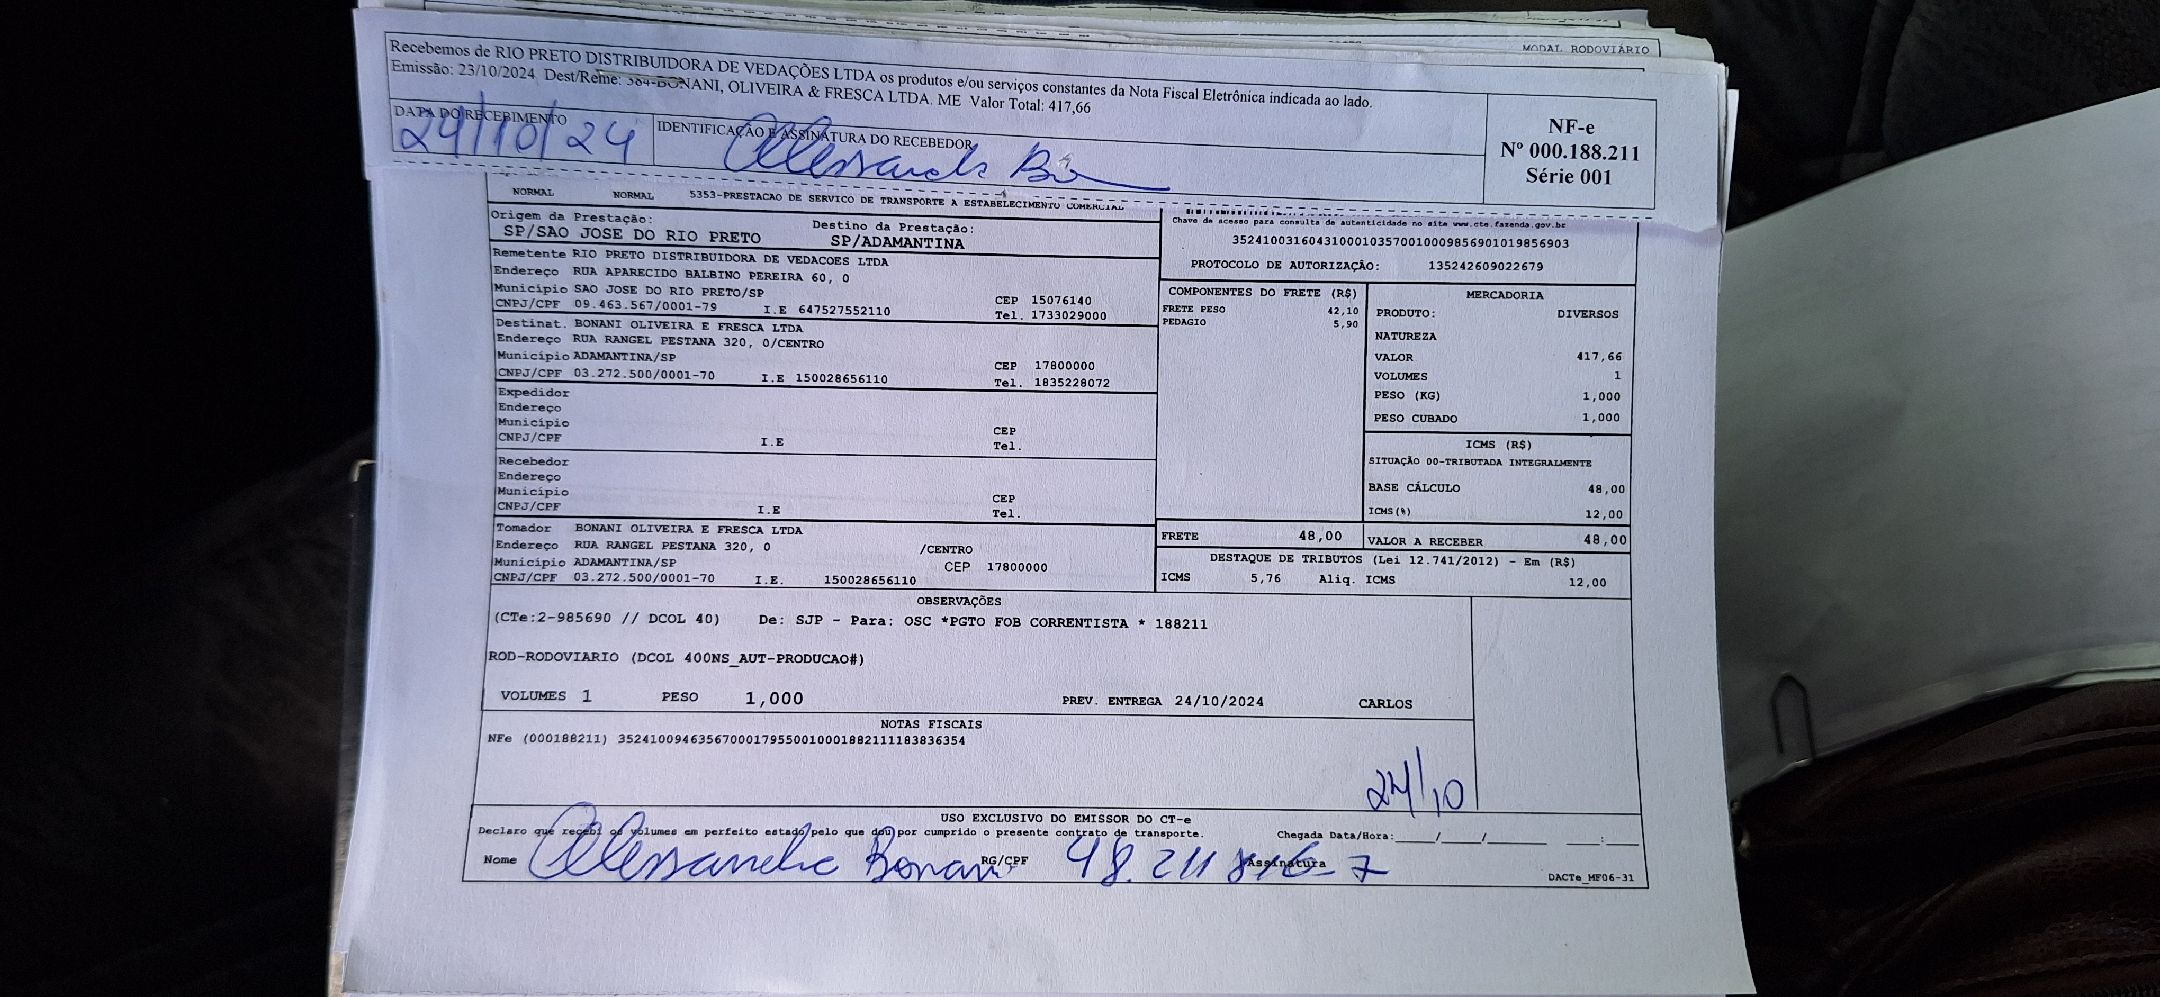 MODAL RODOVIÁRIO
Recebemos de RIO PRETO DISTRIBUIDORA DE VEDAÇÕES LTDA os produtos e/ou serviços constantes da Nota Fiscal Eletrônica indicada ao lado.
Emissão: 23/10/2024 Dest/Reme: 384-BONANI, OLIVEIRA & FRESCA LTDA. ME Valor Total: 417,66
DATA DO RECEBIMENTO
24/10/24
IDENTIFICAÇÃO E ASSINATURA DO RECEBEDOR
NF-e
Nº 000.188.211
Série 001
NORMAL NORMAL 5353-PRESTACAO DE SERVICO DE TRANSPORTE A ESTABELECIMENTO COMERCIAL
Origem da Prestação: Destino da Prestação:
SP/SAO JOSE DO RIO PRETO SP/ADAMANTINA
Chave de acesso para consulta de autenticidade no site www.cte.fazenda.gov.br
35241003160431000103570010009856901019856903
PROTOCOLO DE AUTORIZAÇÃO: 135242609022679
Remetente RIO PRETO DISTRIBUIDORA DE VEDACOES LTDA
Endereço RUA APARECIDO BALBINO PEREIRA 60, 0
Município SAO JOSE DO RIO PRETO/SP CEP 15076140
CNPJ/CPF 09.463.567/0001-79 I.E 647527552110 Tel. 1733029000
Destinat. BONANI OLIVEIRA E FRESCA LTDA
Endereço RUA RANGEL PESTANA 320, 0/CENTRO
Município ADAMANTINA/SP CEP 17800000
CNPJ/CPF 03.272.500/0001-70 I.E 150028656110 Tel. 1835228072
Expedidor
Endereço
Município CEP
CNPJ/CPF I.E Tel.
Recebedor
Endereço
Município CEP
CNPJ/CPF I.E Tel.
Tomador BONANI OLIVEIRA E FRESCA LTDA
Endereço RUA RANGEL PESTANA 320, 0 /CENTRO
Município ADAMANTINA/SP CEP 17800000
CNPJ/CPF 03.272.500/0001-70 I.E. 150028656110
COMPONENTES DO FRETE (R$)
FRETE PESO 42,10
PEDAGIO 5,90
FRETE 48,00
MERCADORIA
PRODUTO: DIVERSOS
NATUREZA
VALOR 417,66
VOLUMES 1
PESO (KG) 1,000
PESO CUBADO 1,000
ICMS (R$)
SITUAÇÃO 00-TRIBUTADA INTEGRALMENTE
BASE CÁLCULO 48,00
ICMS(%) 12,00
VALOR A RECEBER 48,00
DESTAQUE DE TRIBUTOS (Lei 12.741/2012) - Em (R$)
ICMS 5,76 Aliq. ICMS 12,00
OBSERVAÇÕES
(CTe:2-985690 // DCOL 40) De: SJP - Para: OSC *PGTO FOB CORRENTISTA * 188211
ROD-RODOVIARIO (DCOL 400NS_AUT-PRODUCAO#)
VOLUMES 1 PESO 1,000 PREV. ENTREGA 24/10/2024 CARLOS
NOTAS FISCAIS
NFe (000188211) 35241009463567000179550010001882111183836354
24/10
USO EXCLUSIVO DO EMISSOR DO CT-e
Declaro que recebi os volumes em perfeito estado pelo que dou por cumprido o presente contrato de transporte. Chegada Data/Hora:____/____/______ ____:____
Nome Bonani RG/CPF 48.211 816-7 Assinatura
DACTe_MF06-31